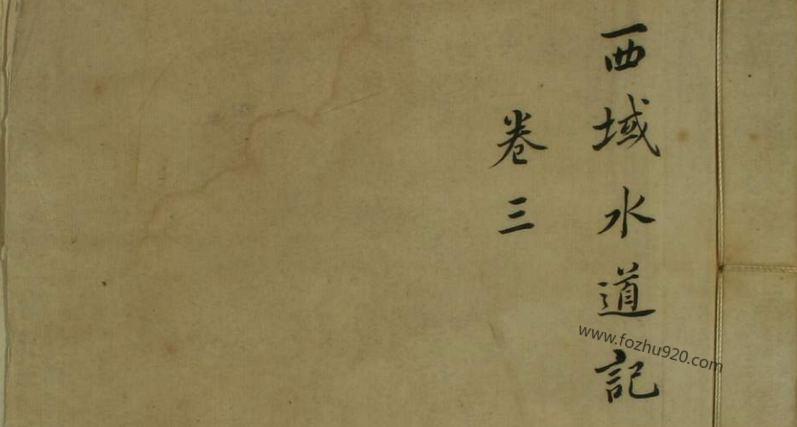 西域水道記
卷三
www.fozhu920.com